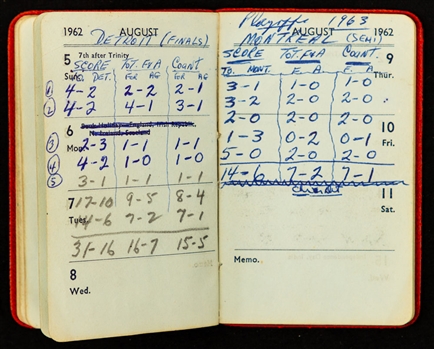 1962 AUGUST
DETROIT (FINALS)
5 7th after Trinity
SCORE TOT. F+A COUNT
Sun. TO. DET. FOR AG FOR AG
1 4-2 2-2 2-1
2 4-2 4-1 3-1
6
Mon.
3 2-3 1-1 1-1
4 4-2 1-0 1-0
5 3-1 1-1 1-1
7 17-10 9-5 8-4
Tues. 14-6 7-2 7-1
31-16 16-7 15-5
8
Wed.
Playoffs 1963
AUGUST 1962
MONTREAL (SEMI)
SCORE TOT. F+A COUNT. 9
TO. MONT. F. A. F. A. Thur.
3-1 1-0 1-0
3-2 0-0 0-0
2-0 2-0 2-0 10
1-3 0-2 0-1 Fri.
5-0 2-0 2-0
14-6 7-2 7-1
11
Sat.
Memo.